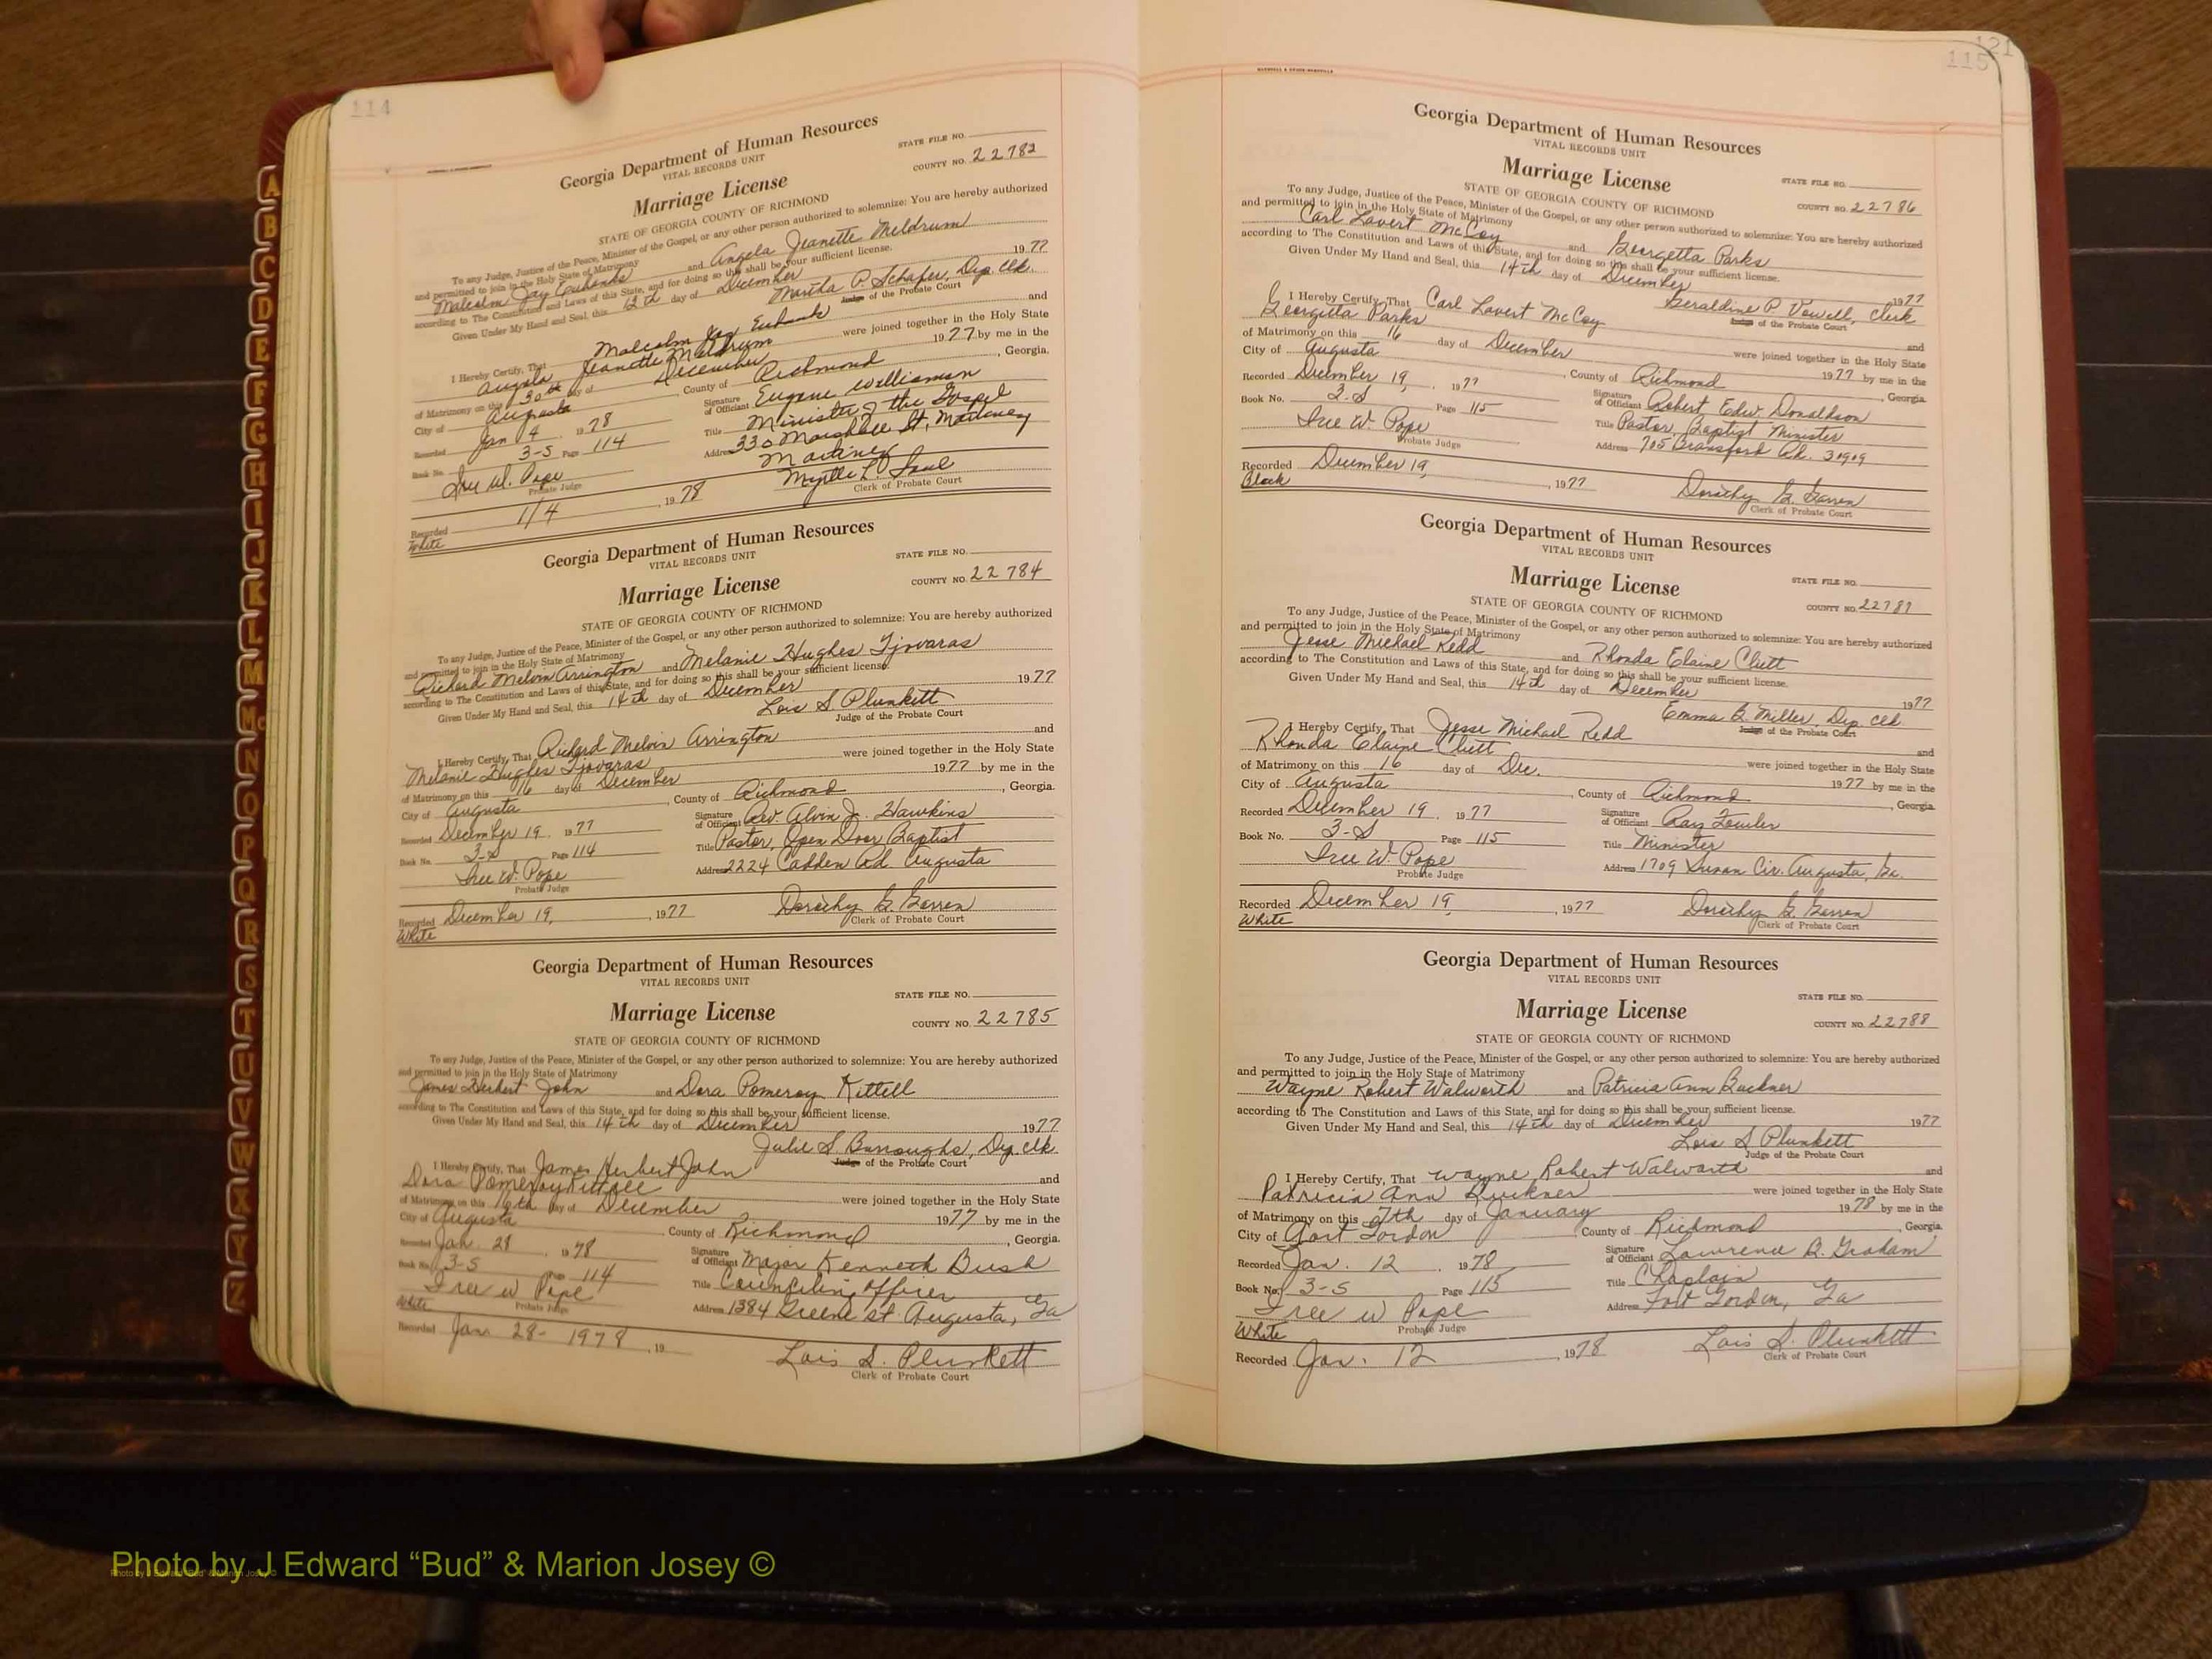 114
Georgia Department of Human Resources
VITAL RECORDS UNIT
STATE FILE NO.
Marriage License
COUNTY NO. 22782
STATE OF GEORGIA COUNTY OF RICHMOND
To any Judge, Justice of the Peace, Minister of the Gospel, or any other person authorized to solemnize: You are hereby authorized
and permitted to join in the Holy State of Matrimony
Malcolm Jay Eubanks and Angela Jeanette Meldrum
according to The Constitution and Laws of this State, and for doing so this shall be your sufficient license.
Given Under My Hand and Seal, this 12th day of December 1977
Martha P. Schafer, Dep. Clk.
Judge of the Probate Court
I Hereby Certify, That Malcolm Jay Eubank and
Angela Jeanette Meldrum were joined together in the Holy State
of Matrimony on this 30th day of December 1977 by me in the
City of Augusta, County of Richmond, Georgia.
Recorded Jan 4 1978 Signature of Officiant Eugene Williamson
Book No. 3-S Page 114 Title Minister of the Gospel
Iree W. Pope Address 330 Marshall St, Martinez
Probate Judge Martinez
Recorded 1/4, 1978 Myrtle L.
White Clerk of Probate Court
Georgia Department of Human Resources
VITAL RECORDS UNIT
STATE FILE NO.
Marriage License
COUNTY NO. 22784
STATE OF GEORGIA COUNTY OF RICHMOND
To any Judge, Justice of the Peace, Minister of the Gospel, or any other person authorized to solemnize: You are hereby authorized
and permitted to join in the Holy State of Matrimony
Richard Melvin Arrington and Melanie Hughes Tjovaras
according to The Constitution and Laws of this State, and for doing so this shall be your sufficient license.
Given Under My Hand and Seal, this 14th day of December 1977
Lois S Plunkett
Judge of the Probate Court
I Hereby Certify, That Richard Melvin Arrington and
Melanie Hughes Tjovaras were joined together in the Holy State
of Matrimony on this 16 day of December 1977 by me in the
City of Augusta, County of Richmond, Georgia.
Recorded December 19 1977 Signature of Officiant Rev Alvin J. Hawkins
Book No. 3-S Page 114 Title Pastor, Open Door Baptist
Iree W. Pope Address 2224 Cadden Rd Augusta
Probate Judge
Recorded December 19, 1977 Dorothy G. Garren
White Clerk of Probate Court
Georgia Department of Human Resources
VITAL RECORDS UNIT
STATE FILE NO.
Marriage License
COUNTY NO. 22785
STATE OF GEORGIA COUNTY OF RICHMOND
To any Judge, Justice of the Peace, Minister of the Gospel, or any other person authorized to solemnize: You are hereby authorized
and permitted to join in the Holy State of Matrimony
James Herbert John and Dora Pomeroy Kittell
according to The Constitution and Laws of this State, and for doing so this shall be your sufficient license.
Given Under My Hand and Seal, this 14th day of December 1977
Julie S Burroughs, Dep. Clk.
Judge of the Probate Court
I Hereby Certify, That James Herbert John and
Dora Pomeroy Kittell were joined together in the Holy State
of Matrimony on this 16th day of December 1977 by me in the
City of Augusta, County of Richmond, Georgia.
Recorded Jan. 28, 1978 Signature of Officiant Major Kenneth Bush
Book No. 3-S Page 114 Title Counciling Officer
Iree W Pope Address 1384 Greene st Augusta, Ga
White Probate Judge
Recorded Jan 28- 1978, 19
Lois S. Plunkett
Clerk of Probate Court
121
115
Georgia Department of Human Resources
VITAL RECORDS UNIT
Marriage License
STATE FILE NO.
STATE OF GEORGIA COUNTY OF RICHMOND
COUNTY NO. 22786
To any Judge, Justice of the Peace, Minister of the Gospel, or any other person authorized to solemnize: You are hereby authorized
and permitted to join in the Holy State of Matrimony
Carl Lavert McCoy and Georgetta Parks
according to The Constitution and Laws of this State, and for doing so this shall be your sufficient license.
Given Under My Hand and Seal, this 14th day of December 1977
Geraldine P. Vowell, Clerk
Judge of the Probate Court
I Hereby Certify, That Carl Lavert McCoy and
Georgetta Parks were joined together in the Holy State
of Matrimony on this 16 day of December 1977 by me in the
City of Augusta, County of Richmond, Georgia.
Recorded December 19, 1977 Signature of Officiant Robert Edw. Donaldson
Book No. 3-S Page 115 Title Pastor, Baptist Minister
Iree W. Pope Address 705 Bransford Rd. 30909
Probate Judge
Recorded December 19, 1977 Dorothy G. Garren
Black Clerk of Probate Court
Georgia Department of Human Resources
VITAL RECORDS UNIT
Marriage License
STATE FILE NO.
STATE OF GEORGIA COUNTY OF RICHMOND
COUNTY NO. 22787
To any Judge, Justice of the Peace, Minister of the Gospel, or any other person authorized to solemnize: You are hereby authorized
and permitted to join in the Holy State of Matrimony
Jesse Michael Redd and Rhonda Elaine Clutt
according to The Constitution and Laws of this State, and for doing so this shall be your sufficient license.
Given Under My Hand and Seal, this 14th day of December 1977
Emma B. Miller, Dep. Clk
Judge of the Probate Court
I Hereby Certify, That Jesse Michael Redd and
Rhonda Elaine Clutt were joined together in the Holy State
of Matrimony on this 16 day of Dec. 1977 by me in the
City of Augusta, County of Richmond, Georgia.
Recorded December 19, 1977 Signature of Officiant Ray Fowler
Book No. 3-S Page 115 Title Minister
Iree W. Pope Address 1709 Susan Cir. Augusta, Ga.
Probate Judge
Recorded December 19, 1977 Dorothy G. Garren
White Clerk of Probate Court
Georgia Department of Human Resources
VITAL RECORDS UNIT
STATE FILE NO.
Marriage License
COUNTY NO. 22788
STATE OF GEORGIA COUNTY OF RICHMOND
To any Judge, Justice of the Peace, Minister of the Gospel, or any other person authorized to solemnize: You are hereby authorized
and permitted to join in the Holy State of Matrimony
Wayne Robert Walworth and Patricia Ann Buckner
according to The Constitution and Laws of this State, and for doing so this shall be your sufficient license.
Given Under My Hand and Seal, this 14th day of December 1977
Lois S Plunkett
Judge of the Probate Court
I Hereby Certify, That Wayne Robert Walworth and
Patricia Ann Buckner were joined together in the Holy State
of Matrimony on this 7th day of January 1978 by me in the
City of Fort Gordon County of Richmond, Georgia.
Recorded Jan. 12, 1978 Signature of Officiant Lawrence B. Graham
Book No. 3-S Page 115 Title Chaplain
Iree W Pope Address Fort Gordon, Ga
White Probate Judge
Recorded Jan. 12, 1978 Lois S. Plunkett
Clerk of Probate Court
A
B
C
D
E
F
G
H
I
J
K
L
M
Mc
N
O
P
Q
R
S
T
U
V
W
X
Y
Z
Photo by J Edward “Bud” & Marion Josey ©
Photo by J Edward "Bud" & Marion Josey ©